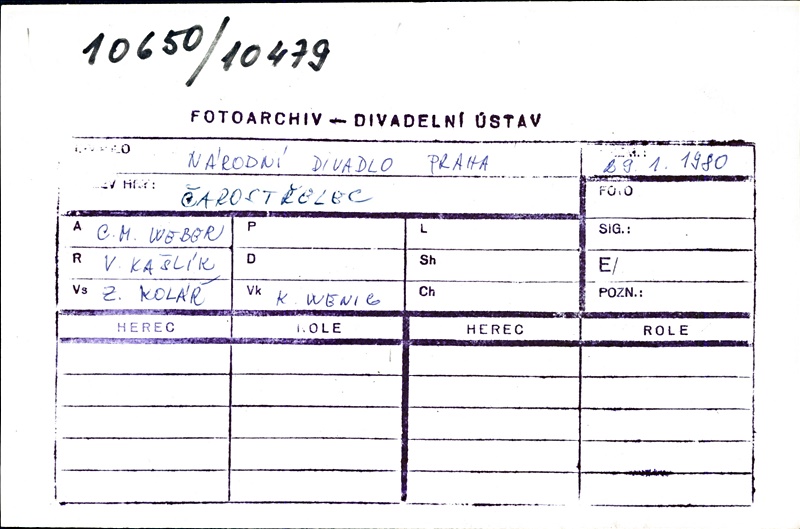 10650/10479
FOTOARCHIV — DIVADELNÍ ÚSTAV
NÁRODNÍ DIVADLO PRAHA 29 1. 1980
ČAROSTŘELEC FOTO
A C. M. WEBER P L SIG.:
R V. KAŠLÍK D Sh E/
Vs Z. KOLÁŘ Vk K. WENIG Ch POZN.:
HEREC ROLE HEREC ROLE